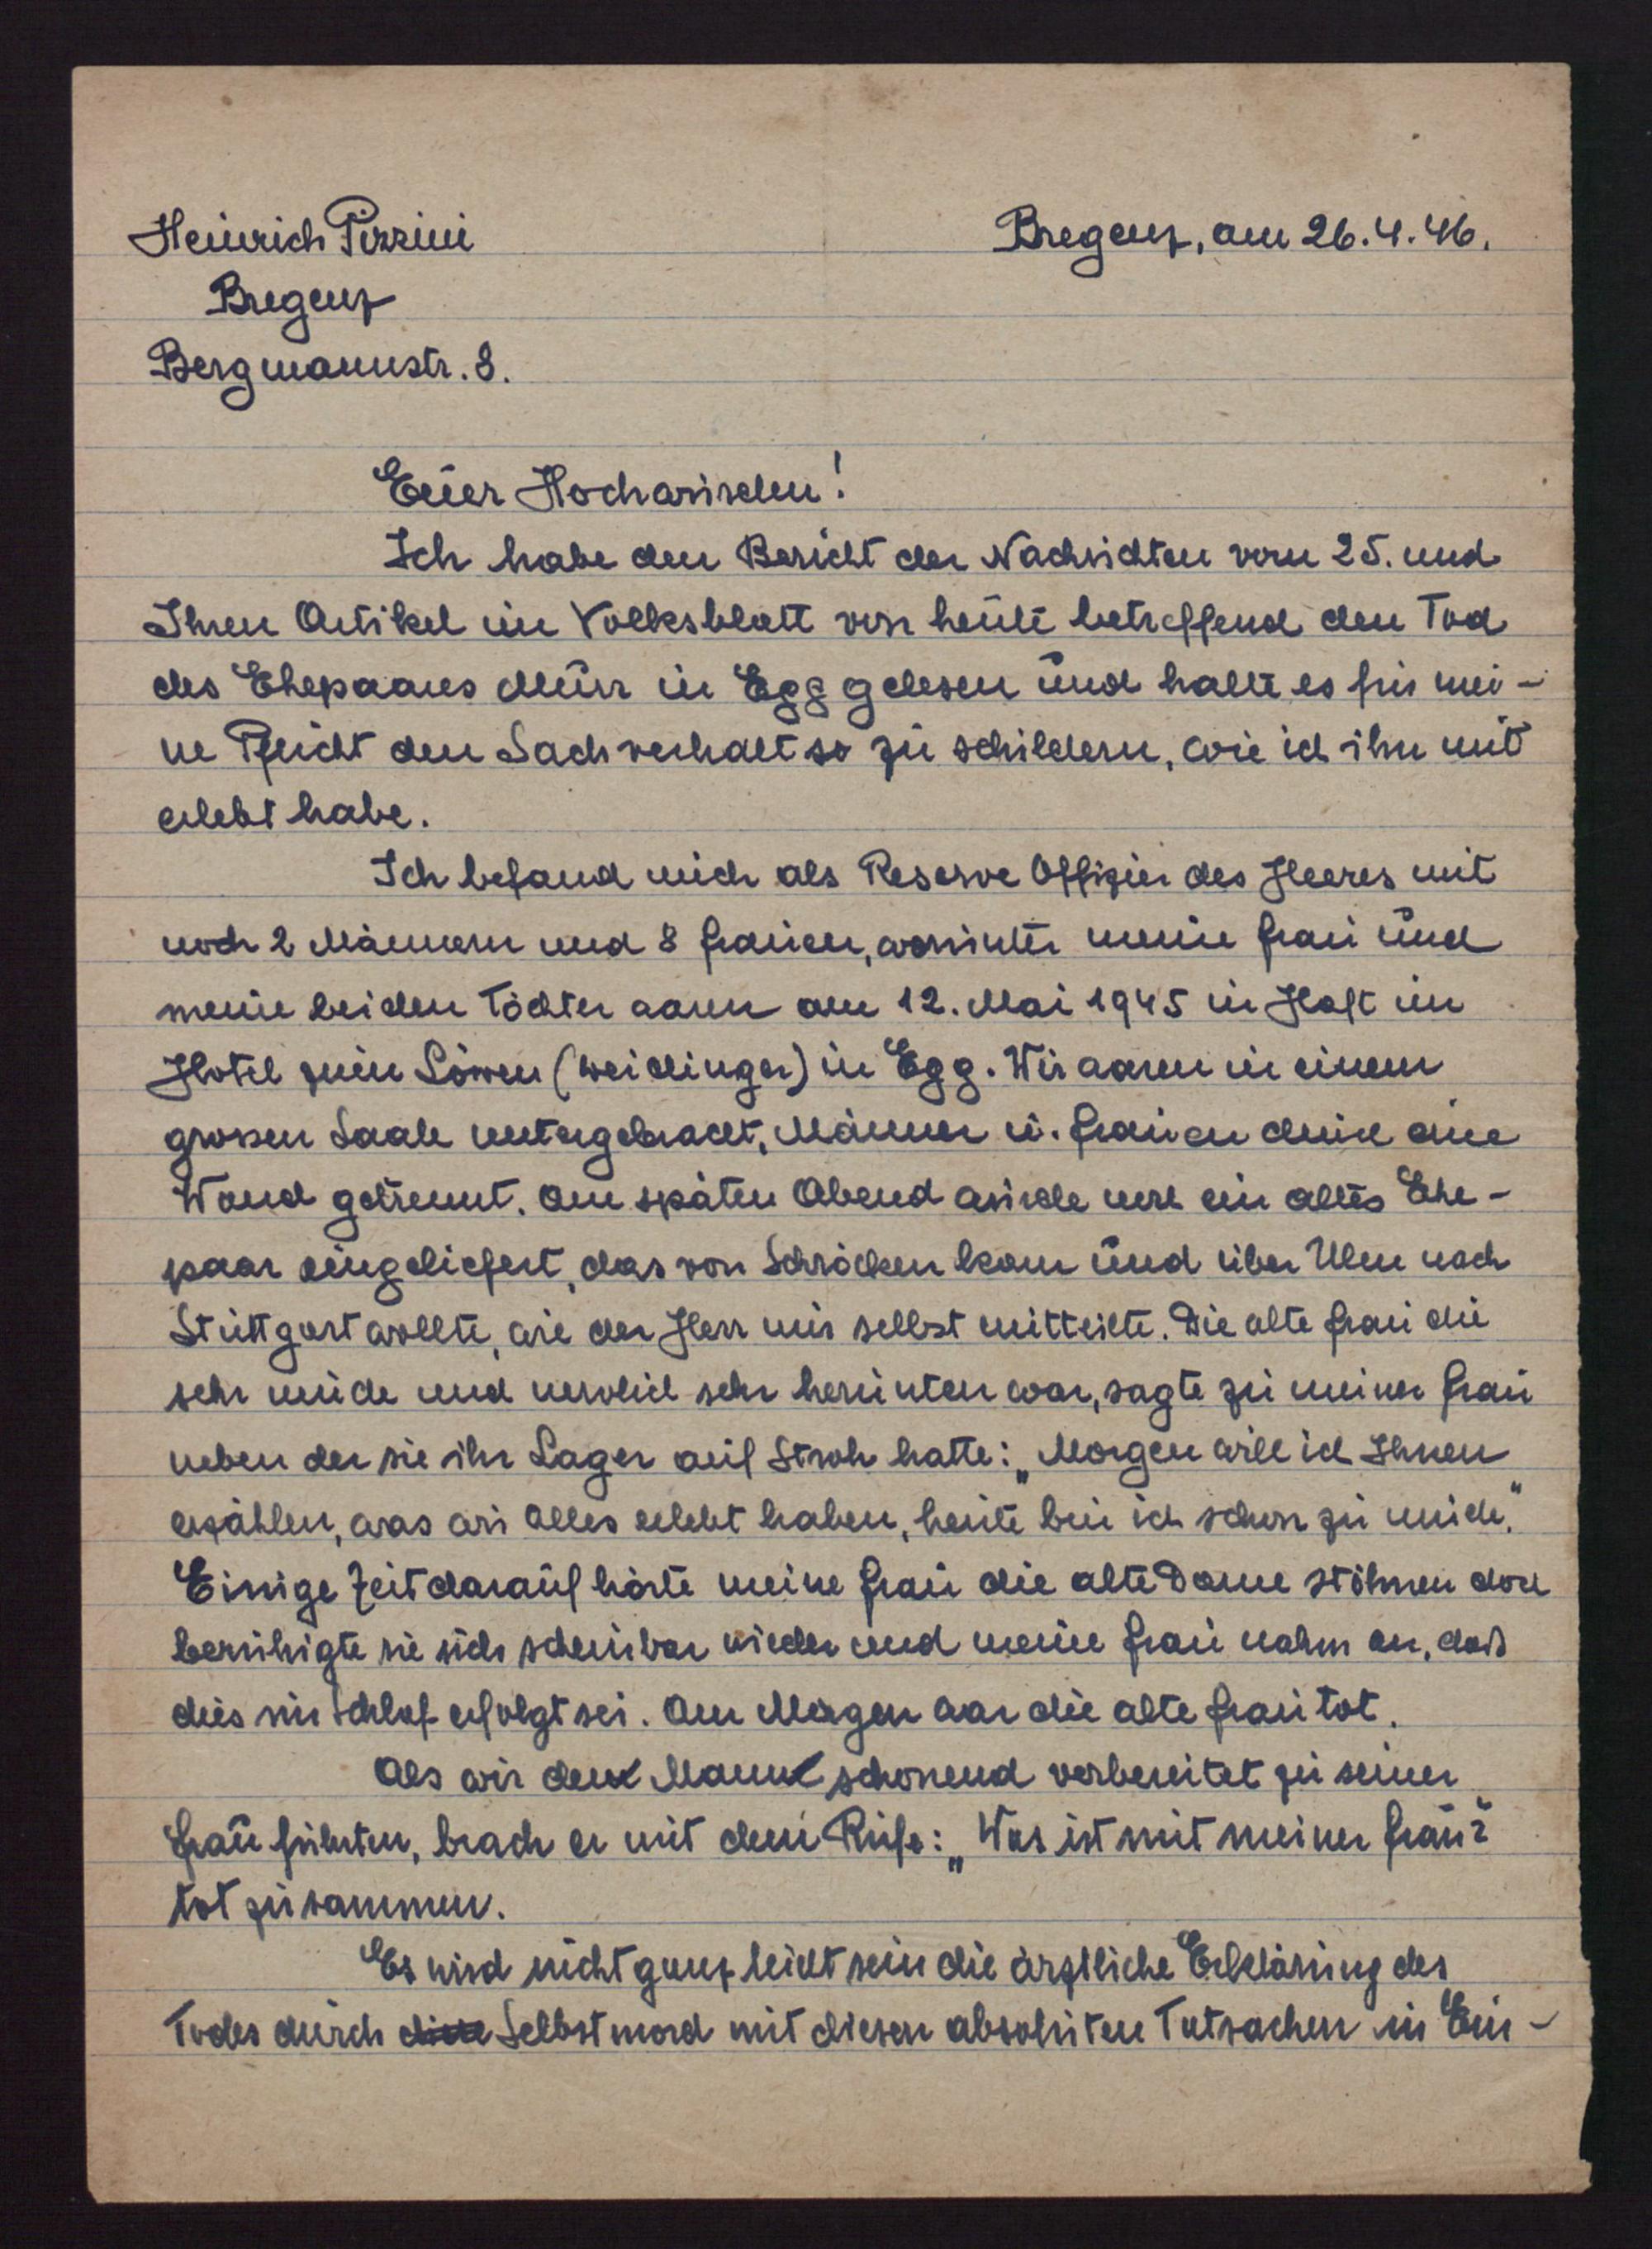 Heinrich Pizzini
Bregenz, am 26.4.46.
Bregenz
Bergmannstr. 8.
Euer Hochwürden!
Ich habe den Bericht der Nachrichten vom 25. und
Ihren Artikel im Volksblatt von heute betreffend den Tod
des Ehepaares Murr in Egg gelesen und halte es für mei-
ne Pflicht den Sachverhalt so zu schildern, wie ich ihn mit
erlebt habe.
Ich befand mich als Reserve Offizier des Heeres mit
noch 2 Männern und 8 Frauen, worunter meine Frau und
meine beiden Töchter waren am 12. Mai 1945 in Haft im
Hotel zum Löwen (Weidinger) in Egg. Wir waren in einem
grossen Saale untergebracht, Männer u. Frauen durch eine
Wand getrennt. Am späten Abend wurde noch ein altes Ehe-
paar eingeliefert, das von Schröcken kam und über Ulm nach
Stuttgart wollte, wie der Herr mir selbst mitteilte. Die alte Frau die
sehr müde und nervlich sehr herunten war, sagte zu meiner Frau
neben der sie ihr Lager auf Stroh hatte: „Morgen will ich Ihnen
erzählen, was wir Alles erlebt haben, heute bin ich schon zu müde."
Einige Zeit darauf hörte meine Frau die alte Dame stöhnen doch
beruhigte sie sich scheinbar wieder und meine Frau nahm an, daß
dies im Schlaf erfolgt sei. Am Morgen war die alte Frau tot.
Als wir den Mann schonend vorbereitet zu seiner
Frau führten, brach er mit dem Rufe: „Was ist mit meiner Frau?"
tot zusammen.
Es wird nicht ganz leicht sein die ärztliche Erklärung des
Todes durch Selbstmord mit diesen absoluten Tatsachen in Ein-